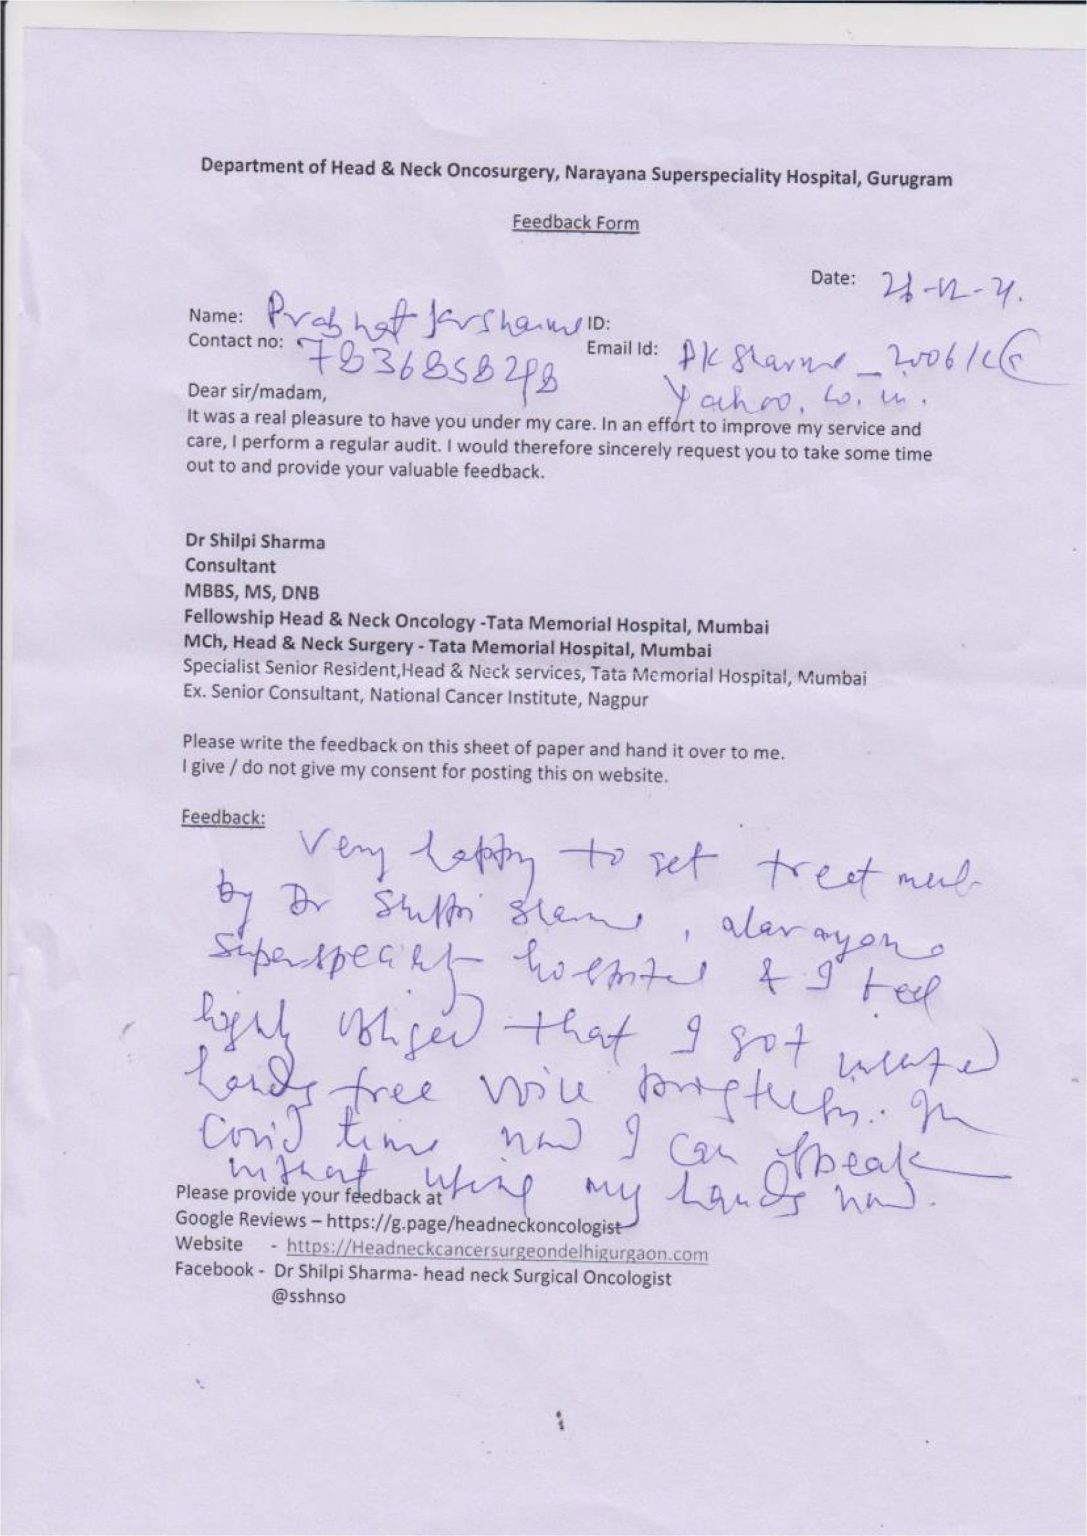 Department of Head & Neck Oncosurgery, Narayana Superspeciality Hospital, Gurugram
Feedback Form
Date:
Name: Prabhat Kr Sharma ID:
Contact no: 7836858298
Email Id:
Yahoo.co.in.
Dear sir/madam,
It was a real pleasure to have you under my care. In an effort to improve my service and
care, I perform a regular audit. I would therefore sincerely request you to take some time
out to and provide your valuable feedback.
Dr Shilpi Sharma
Consultant
MBBS, MS, DNB
Fellowship Head & Neck Oncology -Tata Memorial Hospital, Mumbai
MCh, Head & Neck Surgery - Tata Memorial Hospital, Mumbai
Specialist Senior Resident,Head & Neck services, Tata Memorial Hospital, Mumbai
Ex. Senior Consultant, National Cancer Institute, Nagpur
Please write the feedback on this sheet of paper and hand it over to me.
I give / do not give my consent for posting this on website.
Feedback:
Very happy to get treatment
by Dr Shilpi Sharma, Narayana
Superspeciality hospital & I feel
highly obliged that I got
hands free voice In
Covid time now I can speak
without using my hands now.
Please provide your feedback at
Google Reviews – https://g.page/headneckoncologist
Website - https://Headneckcancersurgeondelhigurgaon.com
Facebook - Dr Shilpi Sharma- head neck Surgical Oncologist
@sshnso